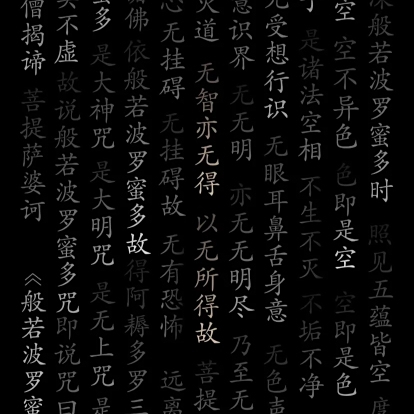 深般若波罗蜜多时 照见五蕴皆空 度
空 空不异色 色即是空 空即是色
是诸法空相 不生不灭 不垢不净
无受想行识 无眼耳鼻舌身意 无色声
意识界 无无明 亦无无明尽 乃至无
灭道 无智亦无得 以无所得故 菩提
无挂碍 无挂碍故 无有恐怖 远离
佛 依般若波罗蜜多故 得阿耨多罗三
蜜多 是大神咒 是大明咒 是无上咒 是
实不虚 故说般若波罗蜜多咒 即说咒曰
僧揭谛 菩提萨婆诃 《般若波罗蜜